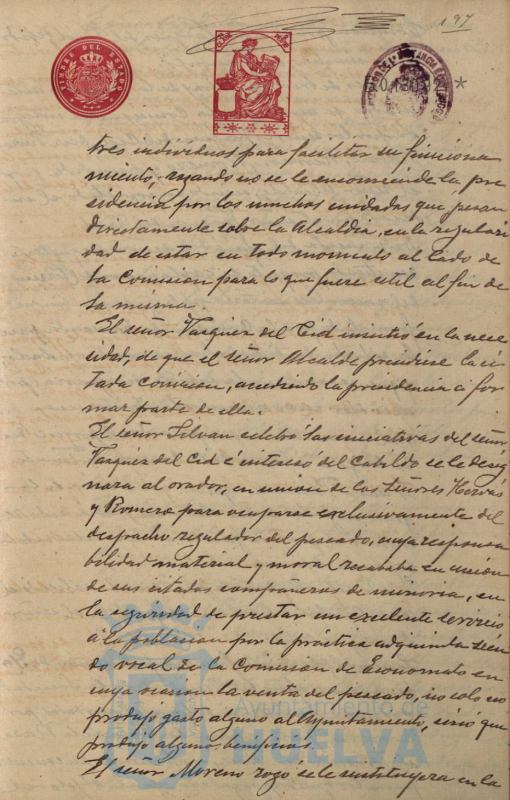 197
TIMBRE DEL ESTADO
tres individuos para facilitar su funciona
miento, rogando no se le encomiende la pre
sidencia por los muchos cuidados que pesan
directamente sobre la Alcaldia, en la seguri
dad de estar en todo momento al lado de
la Comision para lo que fuere util al fin de
la misma.
El señor Vazquez del Cid insistió en la nece
sidad, de que el señor Alcalde presidiese la ci
tada comision, accediendo la presidencia a for
mar parte de ella.
El señor Silvan celebró las iniciativas del señor
Vazquez del Cid é interesó del Cabildo se le desig
nara al orador, en union de los Señores Hervás
y Romero para ocuparse exclusivamente del
despacho regulador del pescado, cuya responsa
bilidad material y moral recababa en union
de sus citados compañeros de minoria, en
la seguridad de prestar un excelente servicio
a la poblacion por la práctica adquirida sien
do vocal de la Comision de Economato en
cuya ocasion la venta del pescado, no solo no
produjo gasto alguno al Ayuntamiento, sino que
produjo algunos beneficios.
El señor Moreno rogó se le sustituyera en la
Ayuntamiento de
HUELVA